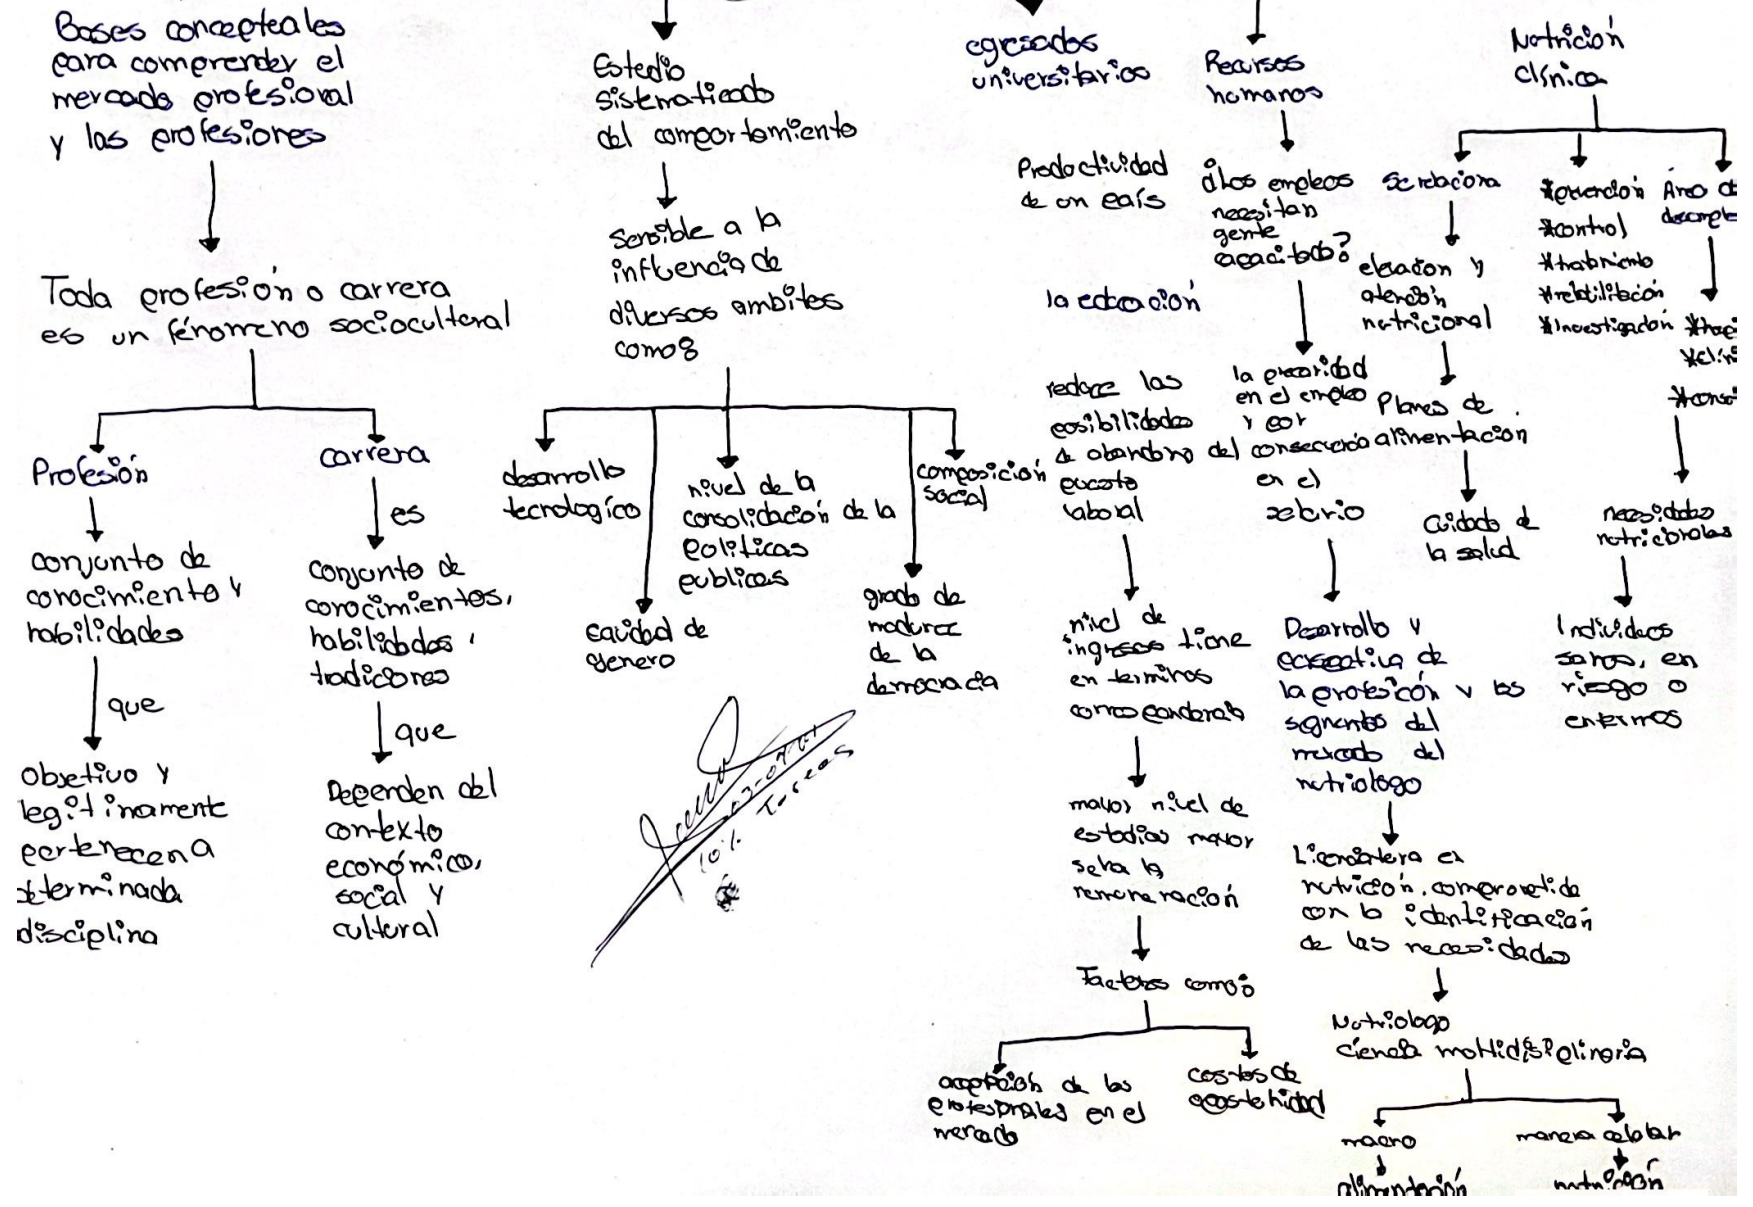 Bases concepteales
para comprender el
mercado profesional
y las profesiones
Toda profesión o carrera
es un fénomeno sociocultural
Profesión
conjunto de
conocimiento y
habilidades
que
Objetivo y
legitinamente
pertenecen a
determinada
disciplina
carrera
es
conjunto de
conocimientos,
habilidades,
tradiciones
que
Dependen del
contexto
económico,
social y
cultural
Estudio
sistematizado
del comportamiento
Sensible a la
influencia de
diversos ambitos
como:
desarrollo
tecnologíco
equidad de
genero
nivel de la
consolidación de la
politicas
publicas
grado de
madurez
de la
democracia
composición
social
10% Tareas
egresados
universitarios
Productividad
de un país
la educación
reduce las
posibilidades
de abandono del
puesto
laboral
nivel de
ingresos tiene
en terminos
mayor nivel de
estudios mayor
sera la
remuneración
Factores como:
aceptación de los
profesionales en el
mercado
costos de
Recursos
humanos
¿Los empleos
necesitan
gente
capacitada?
la prioridad
en el empleo
y por
en el
salario
Desarrollo y
de
la profesión y los
segmentos del
mercado del
nutriologo
Licenciatura en
nutrición, comprometida
con la identificación
de las necesidades
Nutriologo
ciencia multidisiplinaria
macro
alimentación
manera celular
nutrición
Nutrición
clínica
Se relaciona
y
atención
nutricional
Planes de
alimentación
cuidado de
la salud
*prevención
*control
*rehabilitación
*Investigación
Área de
necesidades
nutricionales
Individuos
sanos, en
riesgo o
enfermos